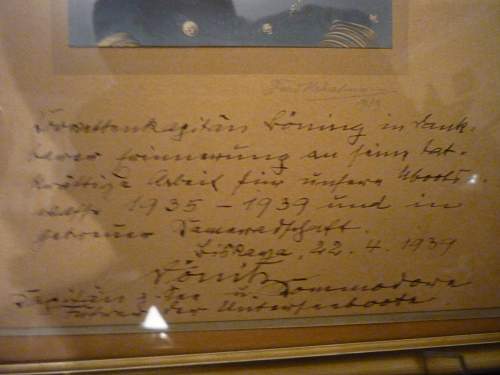 Korvettenkapitän Böning in dank-
barer Erinnerung an seine tat-
kräftige Arbeit für unsere Uboots
waffe 1935 - 1939 und in
getreuer Kameradschaft.
Biskaya, 22.4.1939
Dönitz
Kapitän z. See u. Kommodore
Führer der Unterseeboote